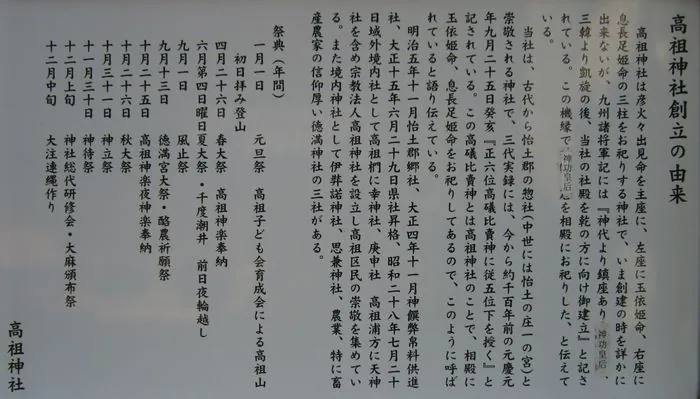 高祖神社創立の由来
高祖神社は彦火々出見命を主座に、左座に玉依姫命、右座に
息長足姫命の三柱をお祀りする神社で、いま創建の時を詳かに
出来ないが、九州諸将軍記には『神代より鎮座あり 神功皇后、
三韓より凱旋の後、当社の社殿を乾の方に向け御建立』と記さ
れている。この機縁で 神功皇后 を相殿にお祀りした、と伝えて
いる。
当社は、古代から怡土郡の惣社(中世には怡土の庄一の宮)と
崇敬される神社で、三代実録には、今から約千百年前の元慶元
年九月二十五日癸亥『正六位高礒比賣神に従五位下を授く』と
記されている。この高礒比賣神とは高祖神社のことで、相殿に
玉依姫命、息長足姫命をお祀りしてあるので、このように呼ば
れていると語り伝えている。
明治五年十一月怡土郡郷社、大正四年十一月神饌幣帛料供進
社、大正十五年六月二十九日県社昇格、昭和二十八年七月二十
日域外境内社として高祖椚に幸神社、庚申社 高祖浦方に天神
社を含め宗教法人高祖神社を設立し高祖区民の崇敬を集めてい
る。また境内神社として伊弉諾神社、思兼神社、農業、特に畜
産農家の信仰厚い徳満神社の三社がある。
祭典(年間)
一月一日 元旦祭 高祖子ども会育成会による高祖山
初日拝み登山
四月二十六日 春大祭 高祖神楽奉納
六月第四日曜日 夏大祭・千度潮井 前日夜輪越し
九月一日 風止祭
九月十三日 徳満宮大祭・酪農祈願祭
十月二十五日 高祖神楽夜神楽奉納
十月二十六日 秋大祭
十月三十一日 神立祭
十一月三十日 神待祭
十二月上旬 神社総代研修会・大麻頒布祭
十二月中旬 大注連縄作り
高祖神社